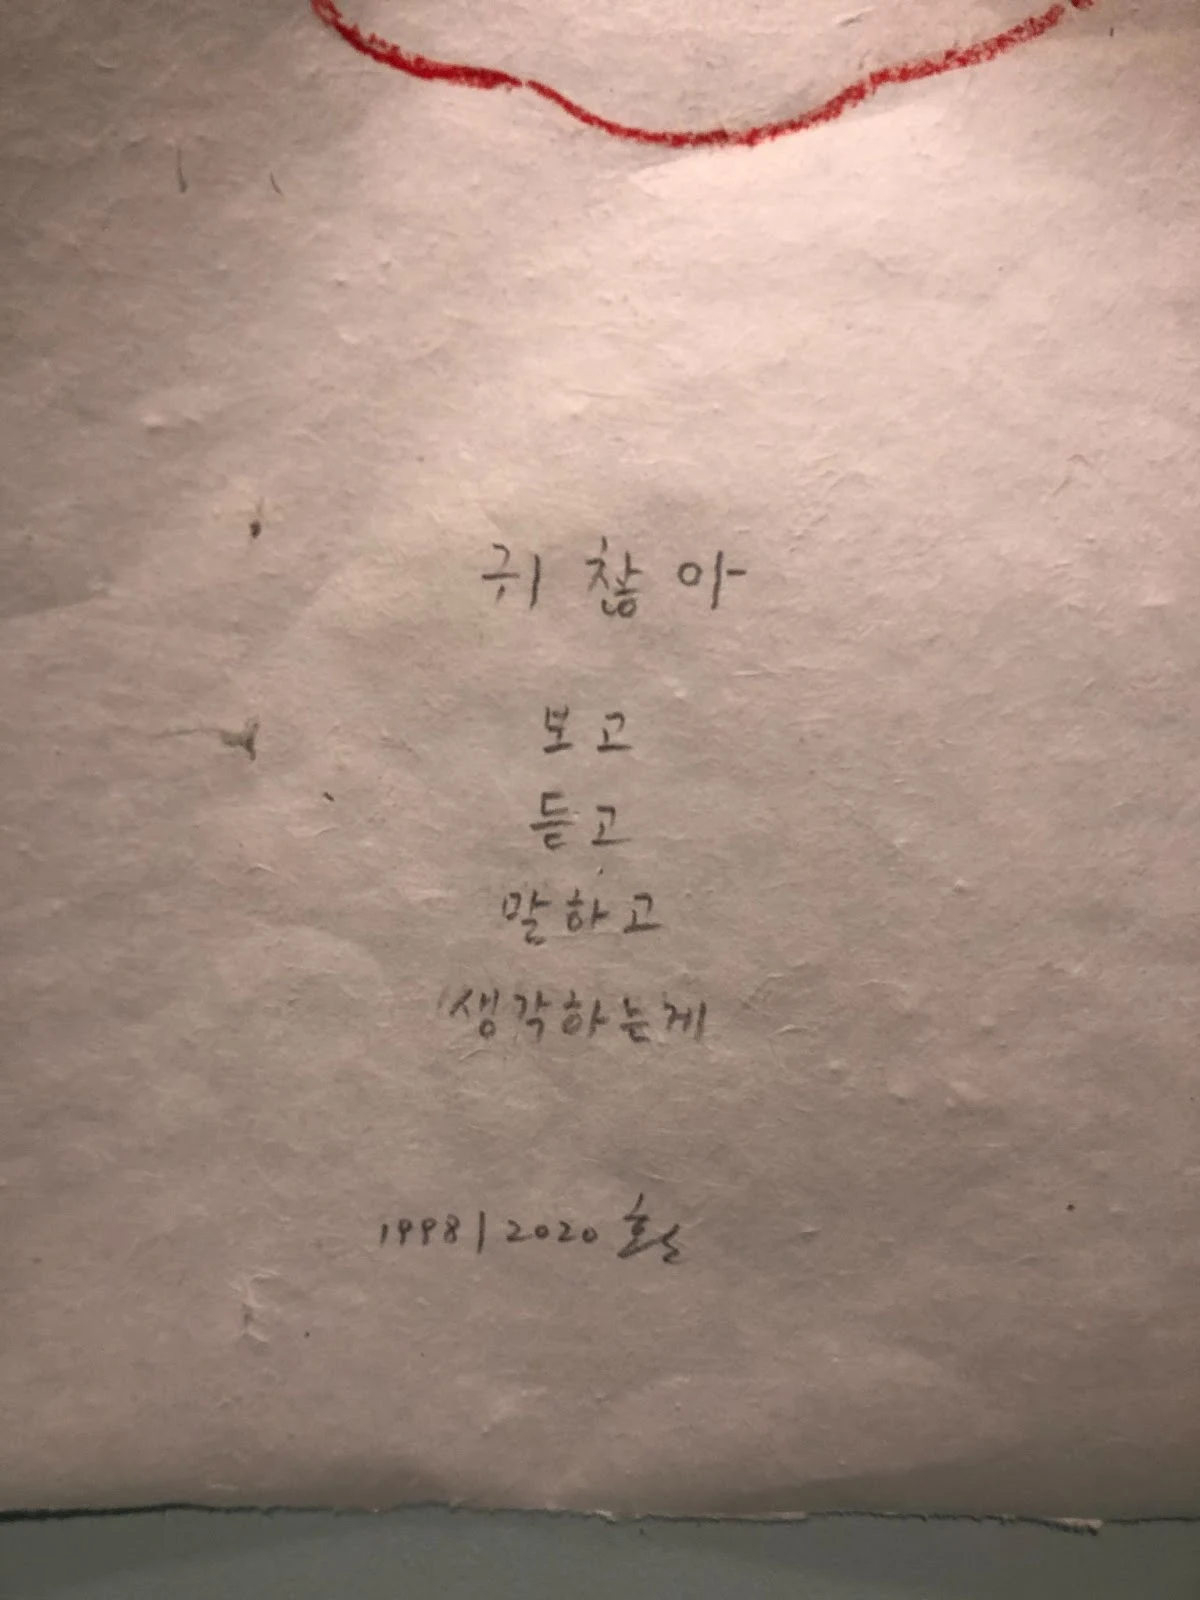 귀찮아
보고
듣고
말하고
생각하는게
1998 | 2020